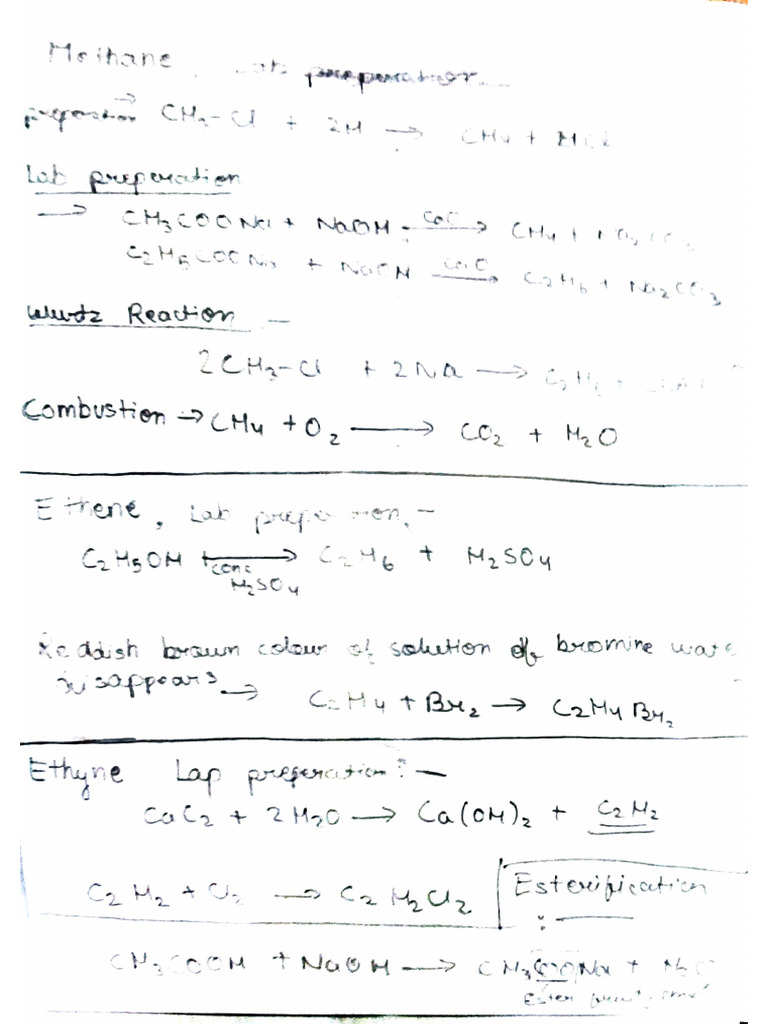 Methane, preperation
preperation → CH3-Cl + 2H → CH4 + HCl
Lab preperation
→ CH3COONa + NaOH CaO→ CH4 + Na2CO3
C2H5COONa + NaOH CaO→ C2H6 + Na2CO3
Wurtz Reaction -
2CH3-Cl + 2Na →
Combustion → CH4 + O2 → CO2 + H2O
Ethene, Lab preperation, -
C2H5OH → C2H6 + H2SO4
conc
H2SO4
Reddish brown colour of solution of bromine wate
disappears → C2H4 + Br2 → C2H4 Br2
Ethyne Lap preperation :-
CaC2 + 2H2O → Ca(OH)2 + C2H2
C2H2 + Cl2 → C2H2Cl2
Esterification
:-
CH3COOH + NaOH → CH3COONa +
Ester